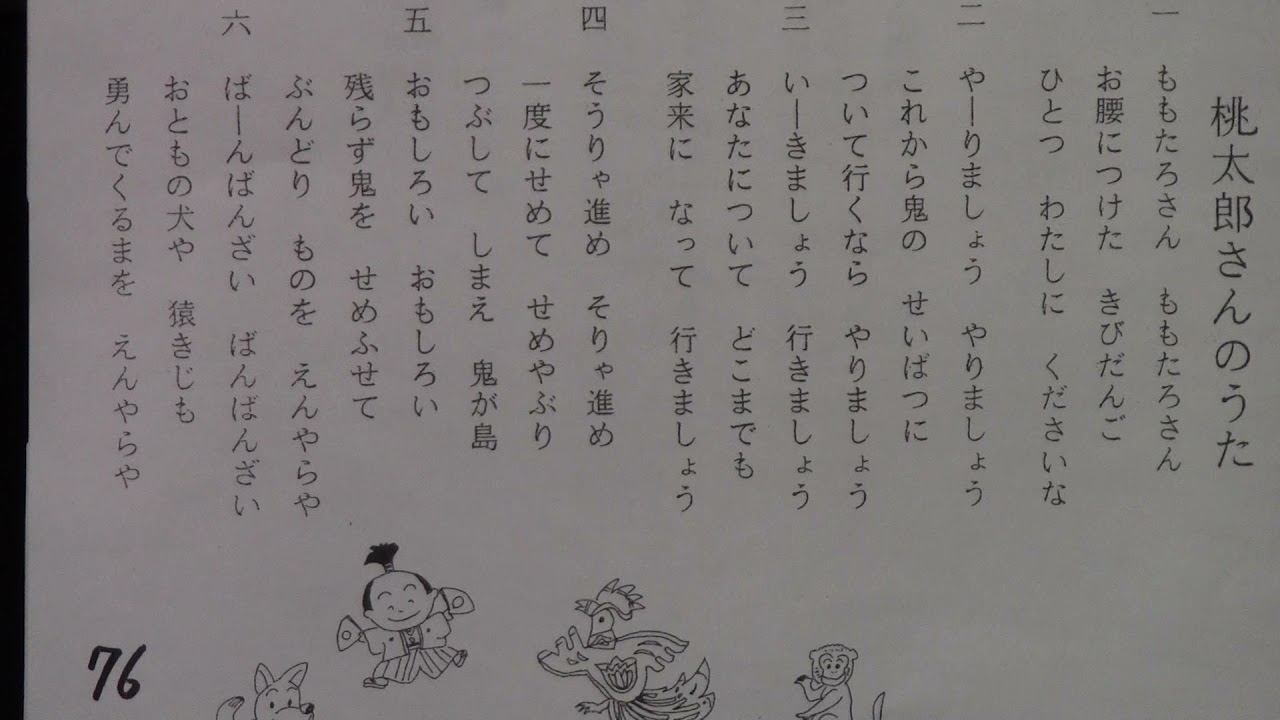 桃太郎さんのうた
一 ももたろさん ももたろさん
お腰につけた きびだんご
ひとつ わたしに くださいな
二 やーりましょう やりましょう
これから鬼の せいばつに
ついて行くなら やりましょう
三 いーきましょう 行きましょう
あなたについて どこまでも
家来に なって 行きましょう
四 そうりゃ進め そりゃ進め
一度にせめて せめやぶり
つぶして しまえ 鬼が島
五 おもしろい おもしろい
残らず鬼を せめふせて
ぶんどり ものを えんやらや
六 ばーんばんざい ばんばんざい
おともの犬や 猿きじも
勇んでくるまを えんやらや
76